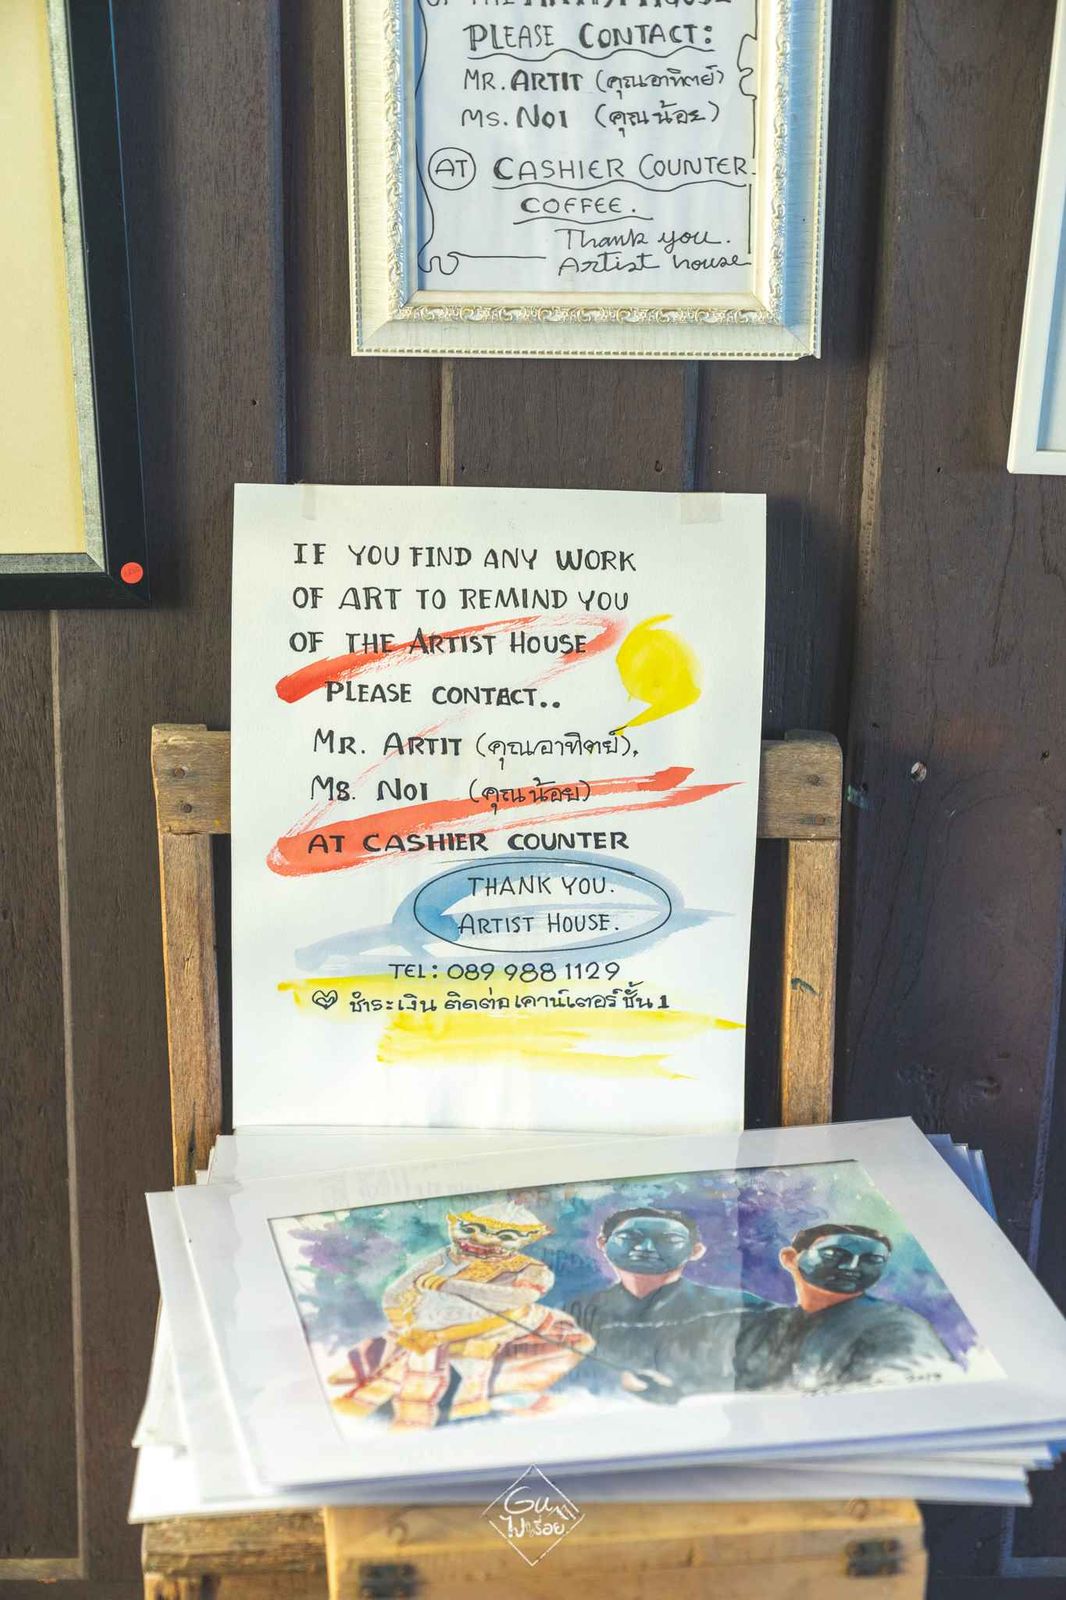 OF THE ARTIST HOUSE
PLEASE CONTACT:
MR. ARTIT (คุณอาทิตย์)
MS. NOI (คุณน้อย)
AT CASHIER COUNTER.
COFFEE.
Thank you.
Artist house
IF YOU FIND ANY WORK
OF ART TO REMIND YOU
OF THE ARTIST HOUSE
PLEASE CONTACT..
MR. ARTIT (คุณอาทิตย์),
MS. NOI (คุณน้อย)
AT CASHIER COUNTER
THANK YOU.
ARTIST HOUSE.
TEL: 089 988 1129
ชำระเงิน ติดต่อเคาน์เตอร์ ชั้น 1
2019
Gun
ไปเรื่อย